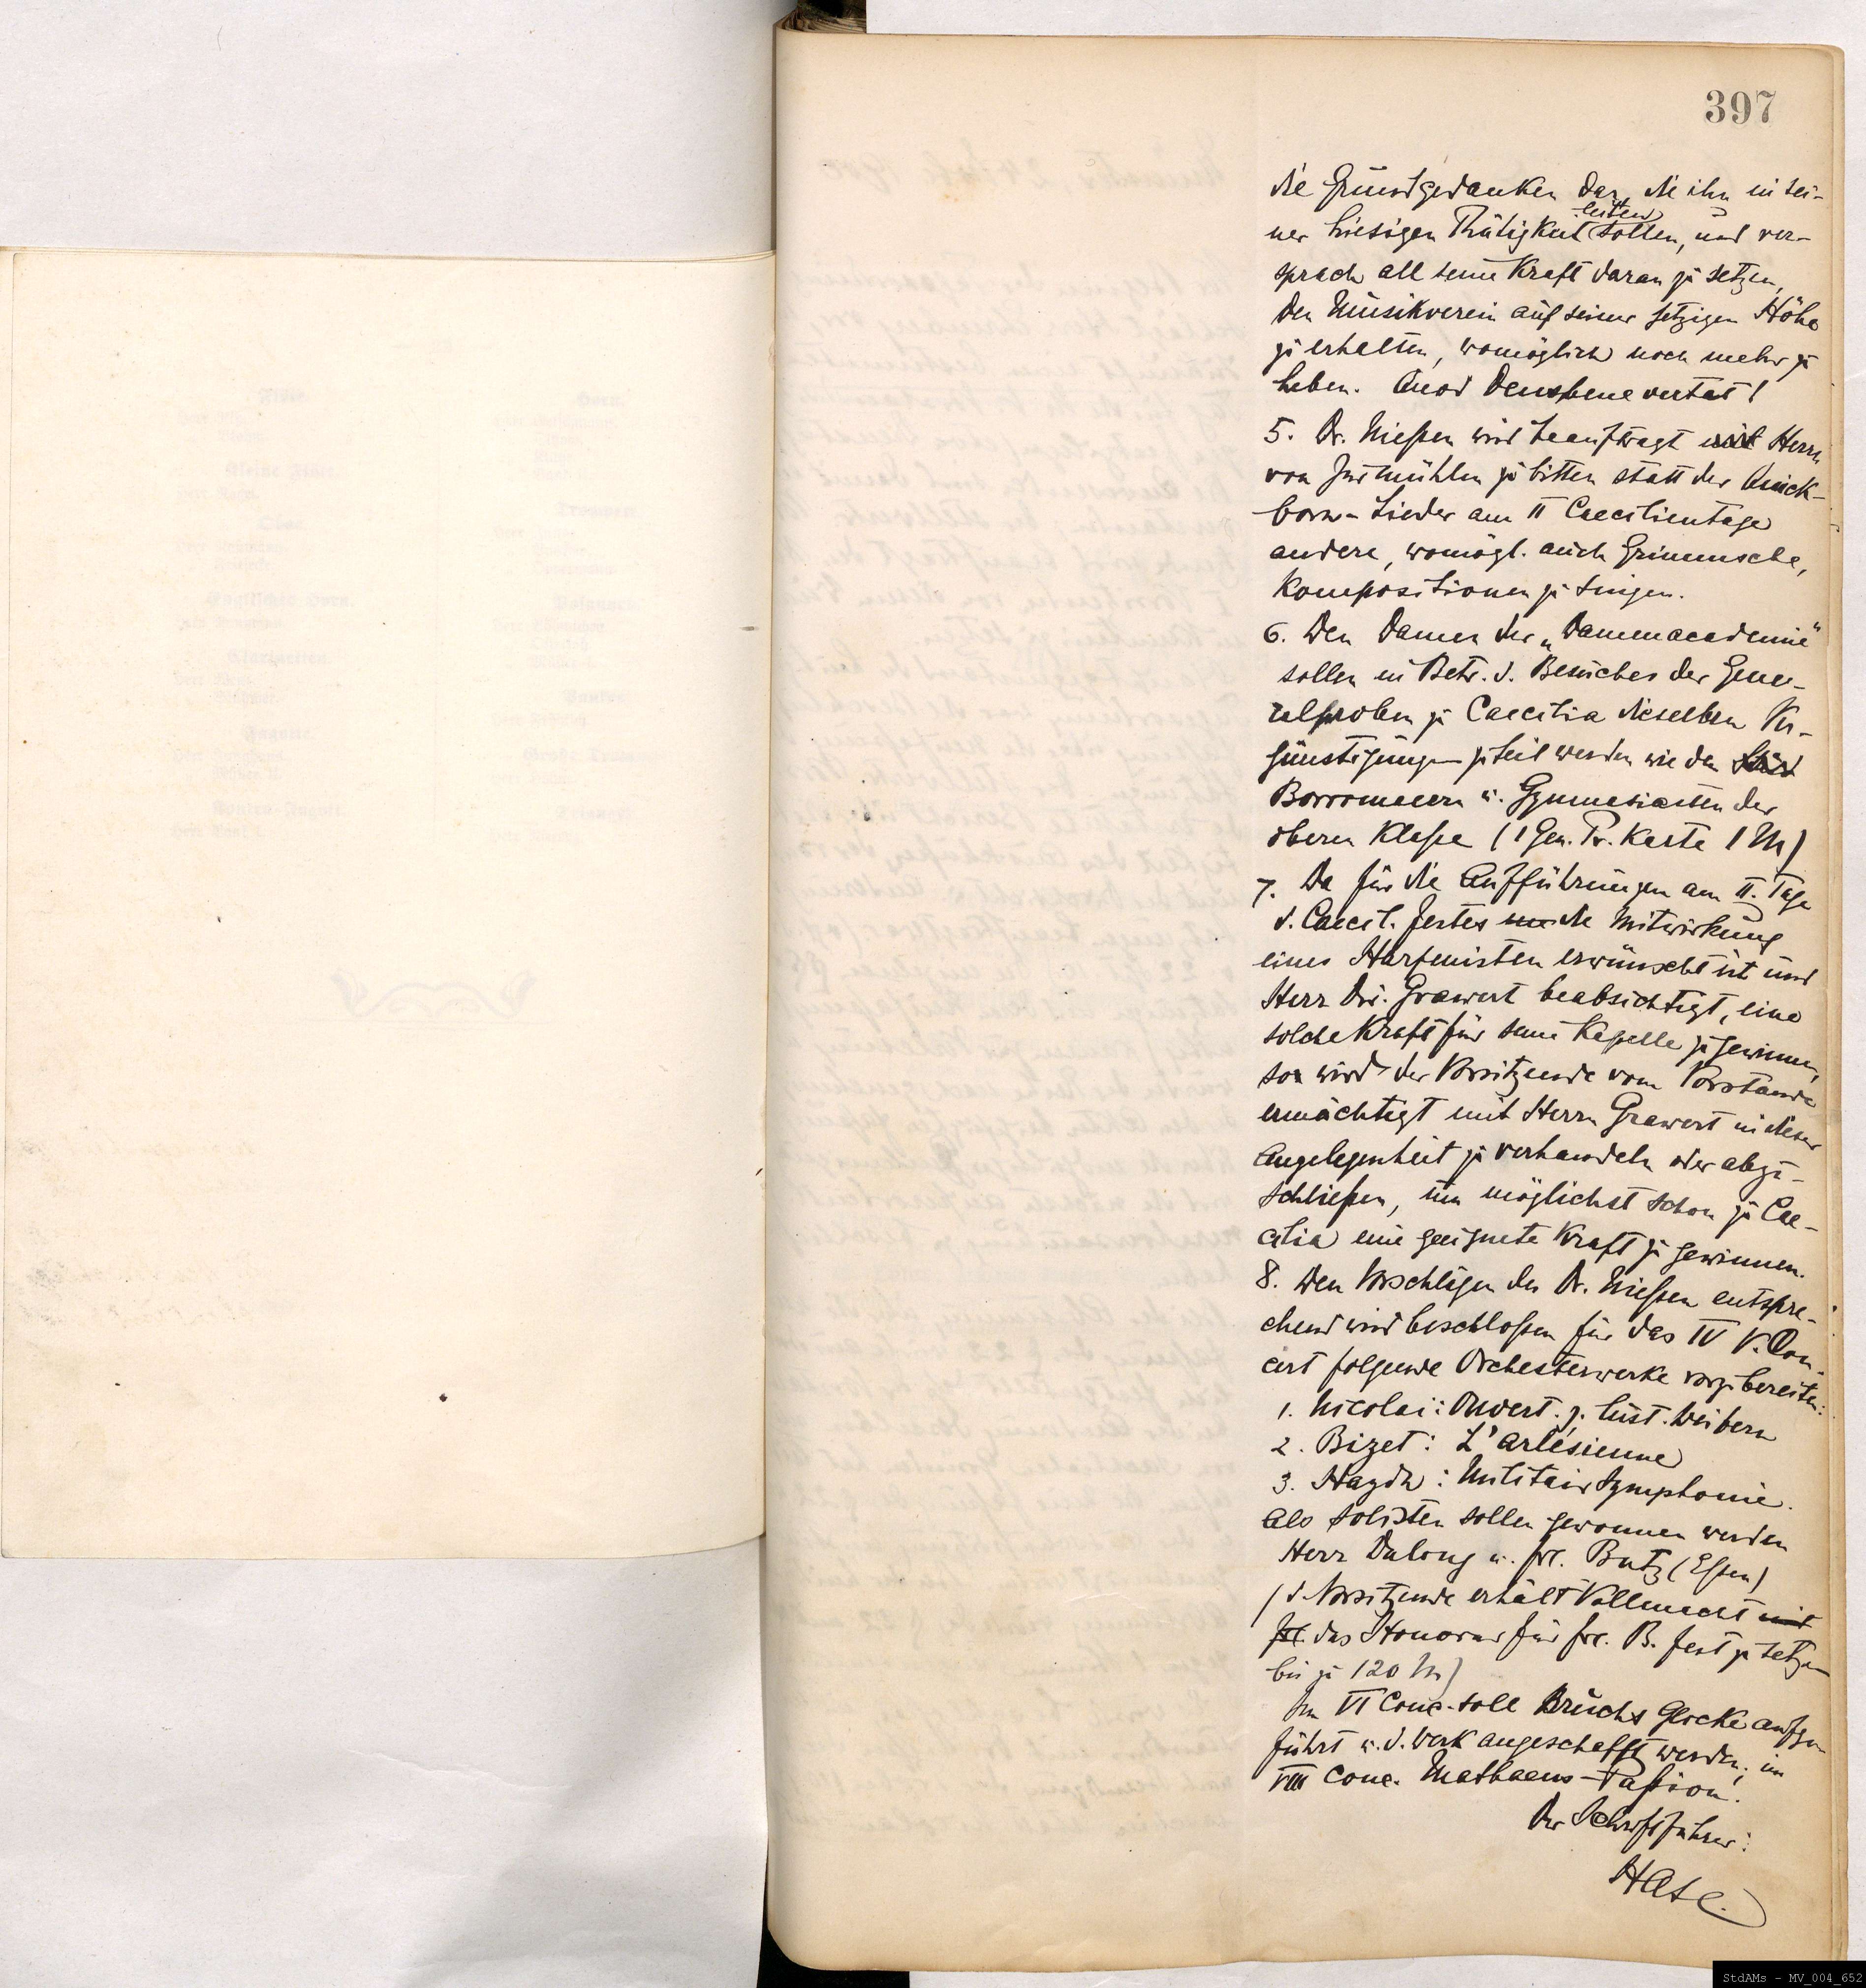 397
die Grundgedanken dar, die ihn in sei-
leiten
ner hiesigen Thätigkeit sollen, und ver-
sprach all seine Kraft daran zu setzen,
den Musikverein auf seiner jetzigen Höhe
zu erhalten, womöglich noch mehr zu
heben. Quod Deus bene vertat!
5. Dr. Nießen wird beauftragt Herrn
von Zur Mühlen zu bitten statt der Quick-
born-Lieder am II Caecilientage
andere, womögl. auch Grimmsche,
Kompositionen zu singen.
6. Den Damen der „Damenacademie"
sollen in Betr. d. Besuches der Gene-
ralproben zu Caecilia dieselben Ver-
günstigungen zu teil werden wie den
Borromaeern u. Gymnasiasten der
oberen Klasse (1 Gen. Pr. Karte 1 M)
7. Da für die Aufführungen am II. Tage
d. Caecil. Festes die Mitwirkung
eines Harfenisten erwünscht ist und
Herr Dir. Grawert beabsichtigt, eine
solche Kraft für seine Kapelle zu gewinnen,
so wird der Vorsitzende vom Vorstande
ermächtigt mit Herrn Grawert in dieser
Angelegenheit zu verhandeln oder abzu-
schließen, um möglichst schon zu Cae-
cilia eine geeignete Kraft zu gewinnen.
8. Den Vorschlägen des Dr. Nießen entspre-
chend wird beschlossen für das IV V. Con-
cert folgende Orchesterwerke vorzubereiten:
1. Nicolai: Ouvert. z. lust. Weibern
2. Bizet: L'arlésienne
3. Haydn: Militair Symphonie.
Als Solisten sollen gewonnen werden
Herr Dulong u. Frl. Butz (Essen)
(d. Vorsitzende erhält Vollmacht
das Honorar für Frl. B. fest zu setzen
bis zu 120 M)
Im VI Conc. soll Bruchs Glocke aufge
führt u. d. Werk angeschafft werden; im
VIII Conc. Mathaeus-Passion.
Der Schriftführer:
Hase.
StdAMs - MV_004_652